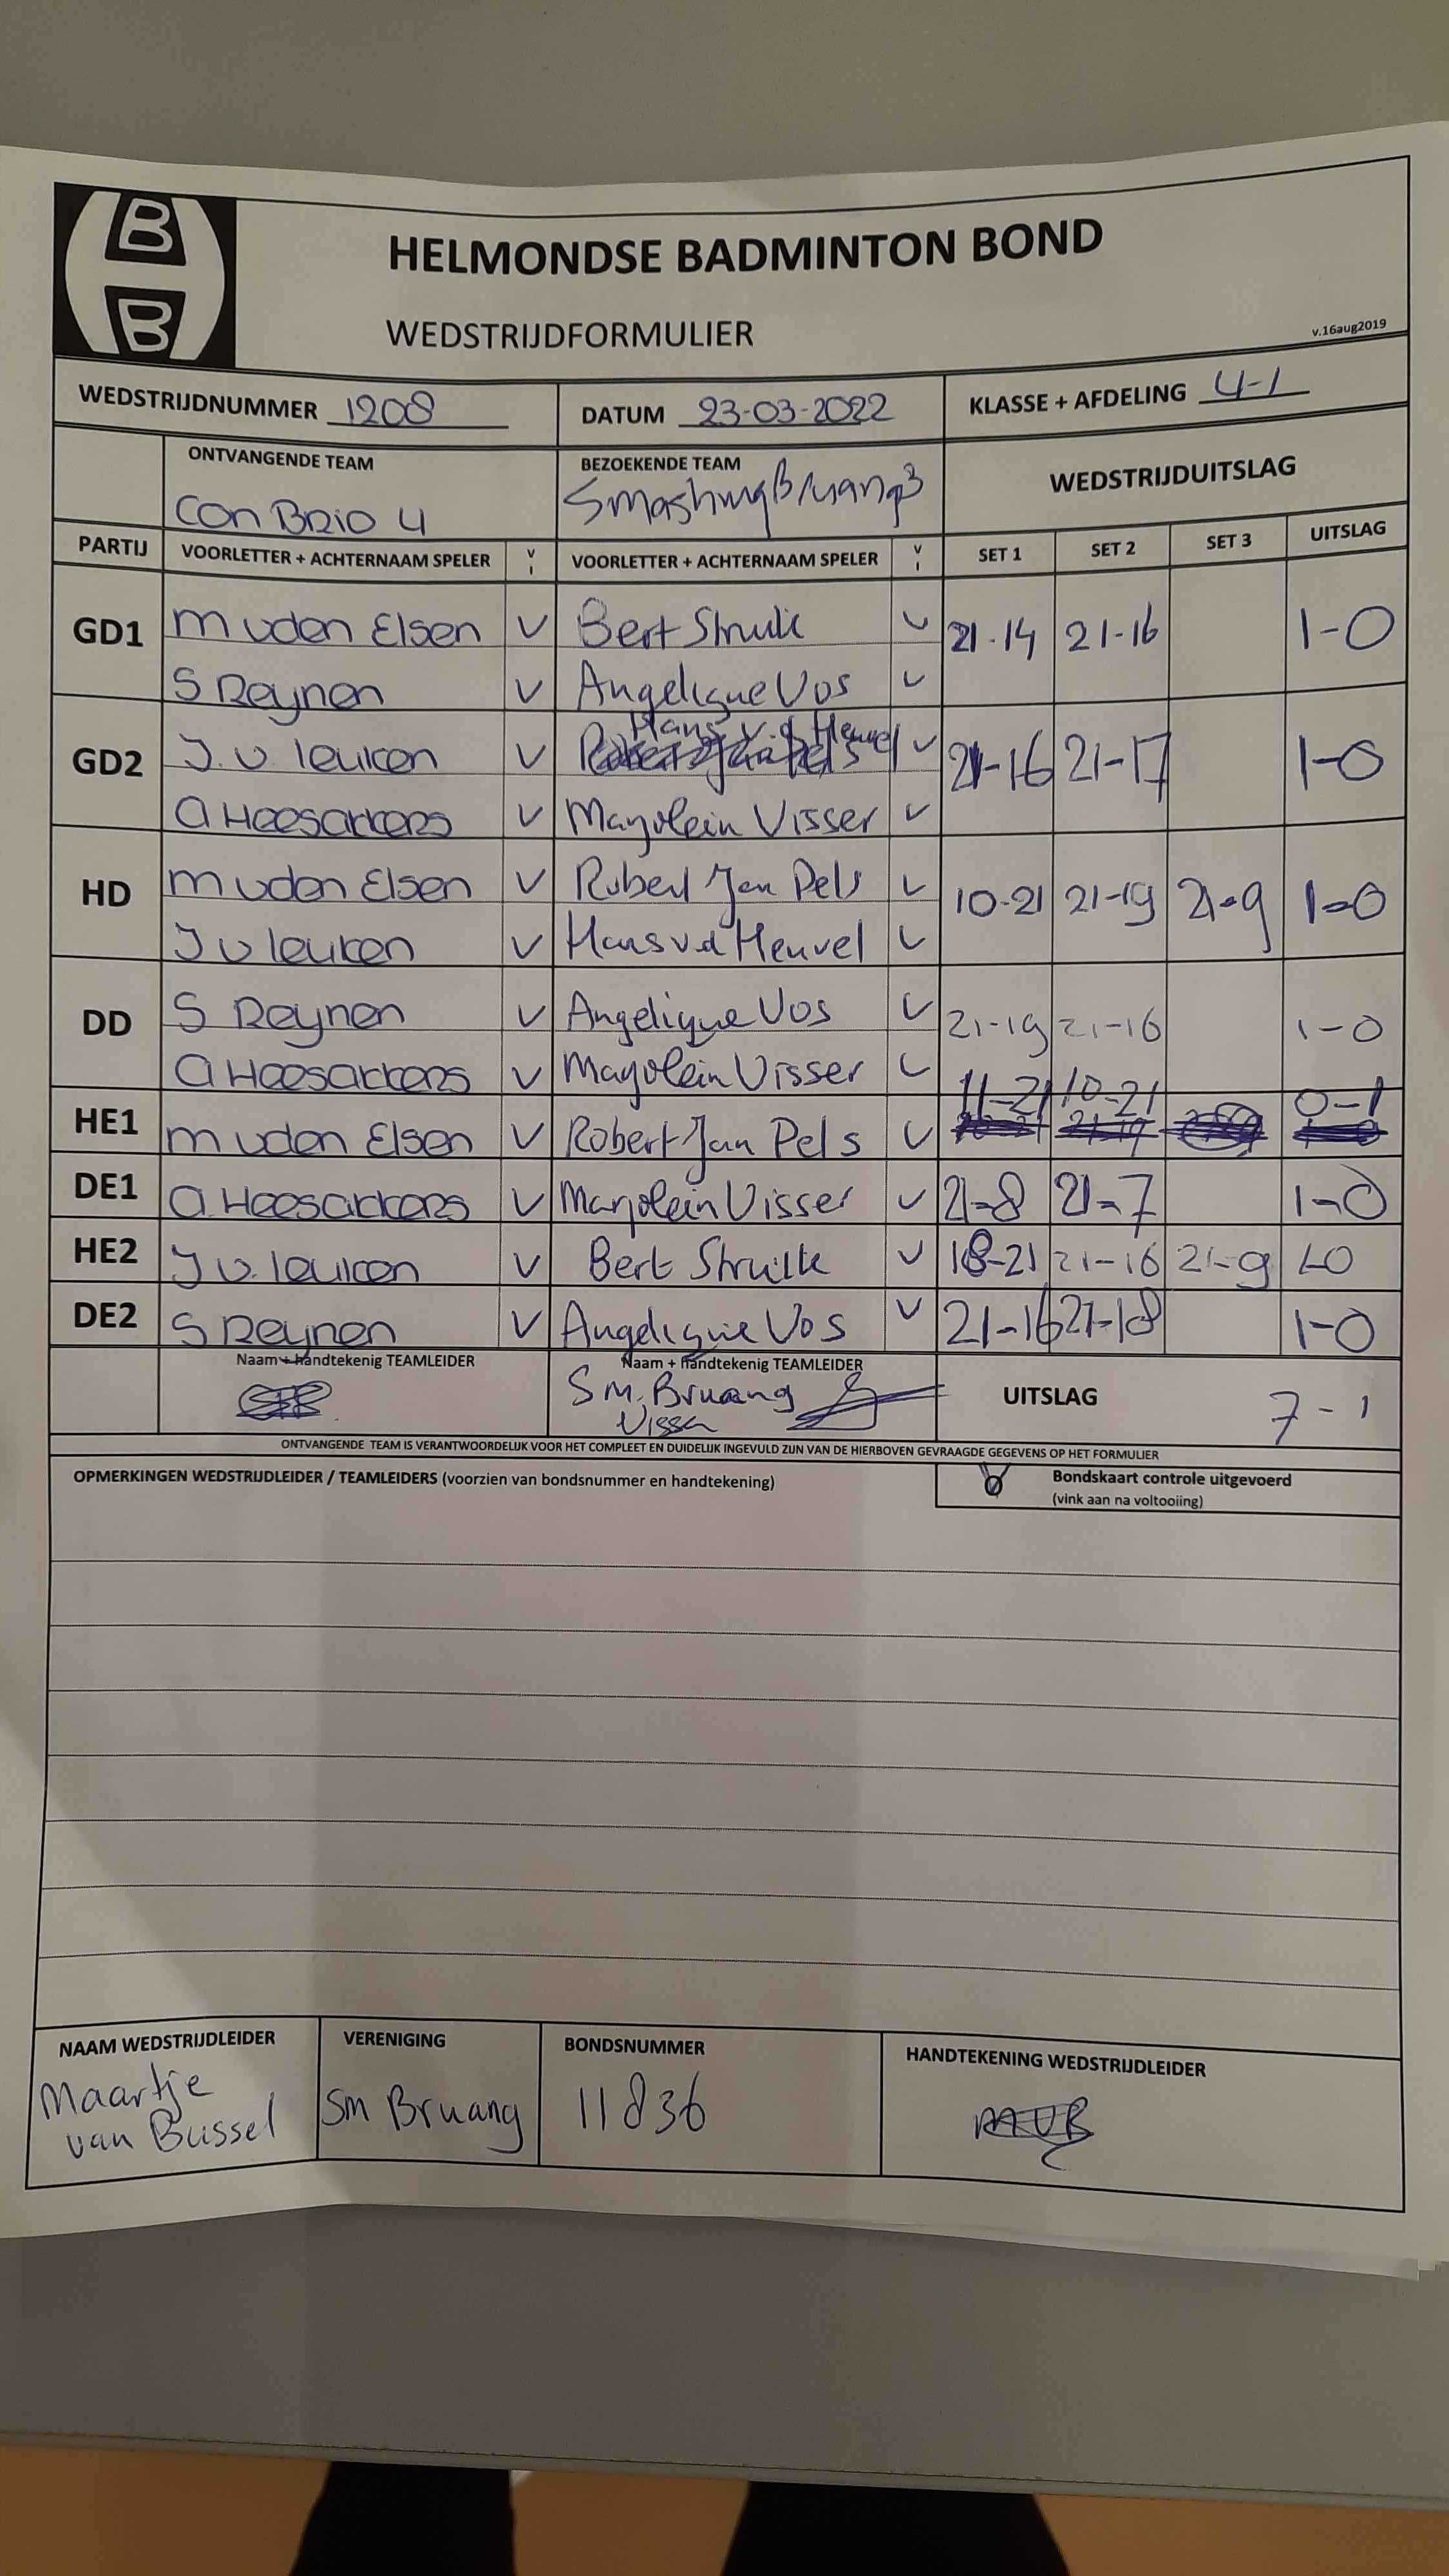 B
B
HELMONDSE BADMINTON BOND
WEDSTRIJDFORMULIER
v.16aug2019
WEDSTRIJDNUMMER 1208 DATUM 23-03-2022 KLASSE + AFDELING 4-1
ONTVANGENDE TEAM BEZOEKENDE TEAM WEDSTRIJDUITSLAG
Con Brio 4 Smashing Bruang 3
PARTIJ VOORLETTER + ACHTERNAAM SPELER V I VOORLETTER + ACHTERNAAM SPELER V I SET 1 SET 2 SET 3 UITSLAG
GD1 M vden Elsen V Bert Struik V 21-14 21-16 1-0
S Reynen V Angelique Vos V
GD2 J. v Leuken V Hans v.d Heuvel V 21-16 21-17 1-0
A Heesackers V Marjolein Visser V
HD M vden Elsen V Robert Jan Pels V 10-21 21-19 21-9 1-0
J v Leuken V Hans v.d Heuvel V
DD S Reynen V Angelique Vos V 21-19 21-16 1-0
A Heesackers V Marjolein Visser V
HE1 M vden Elsen V Robert Jan Pels V 11-21 10-21 0-1
DE1 A. Heesackers V Marjolein Visser V 21-8 21-7 1-0
HE2 J v. Leuken V Bert Struik V 18-21 21-16 21-9 1-0
DE2 S Reynen V Angelique Vos V 21-16 21-18 1-0
Naam + handtekenig TEAMLEIDER Naam + handtekenig TEAMLEIDER UITSLAG 7-1
SM. Bruang
Visser
ONTVANGENDE TEAM IS VERANTWOORDELIJK VOOR HET COMPLEET EN DUIDELIJK INGEVULD ZIJN VAN DE HIERBOVEN GEVRAAGDE GEGEVENS OP HET FORMULIER
OPMERKINGEN WEDSTRIJDLEIDER / TEAMLEIDERS (voorzien van bondsnummer en handtekening) V Bondskaart controle uitgevoerd
(vink aan na voltooiing)
NAAM WEDSTRIJDLEIDER VERENIGING BONDSNUMMER HANDTEKENING WEDSTRIJDLEIDER
Maartje
van Bussel Sm Bruang 11836 MVB